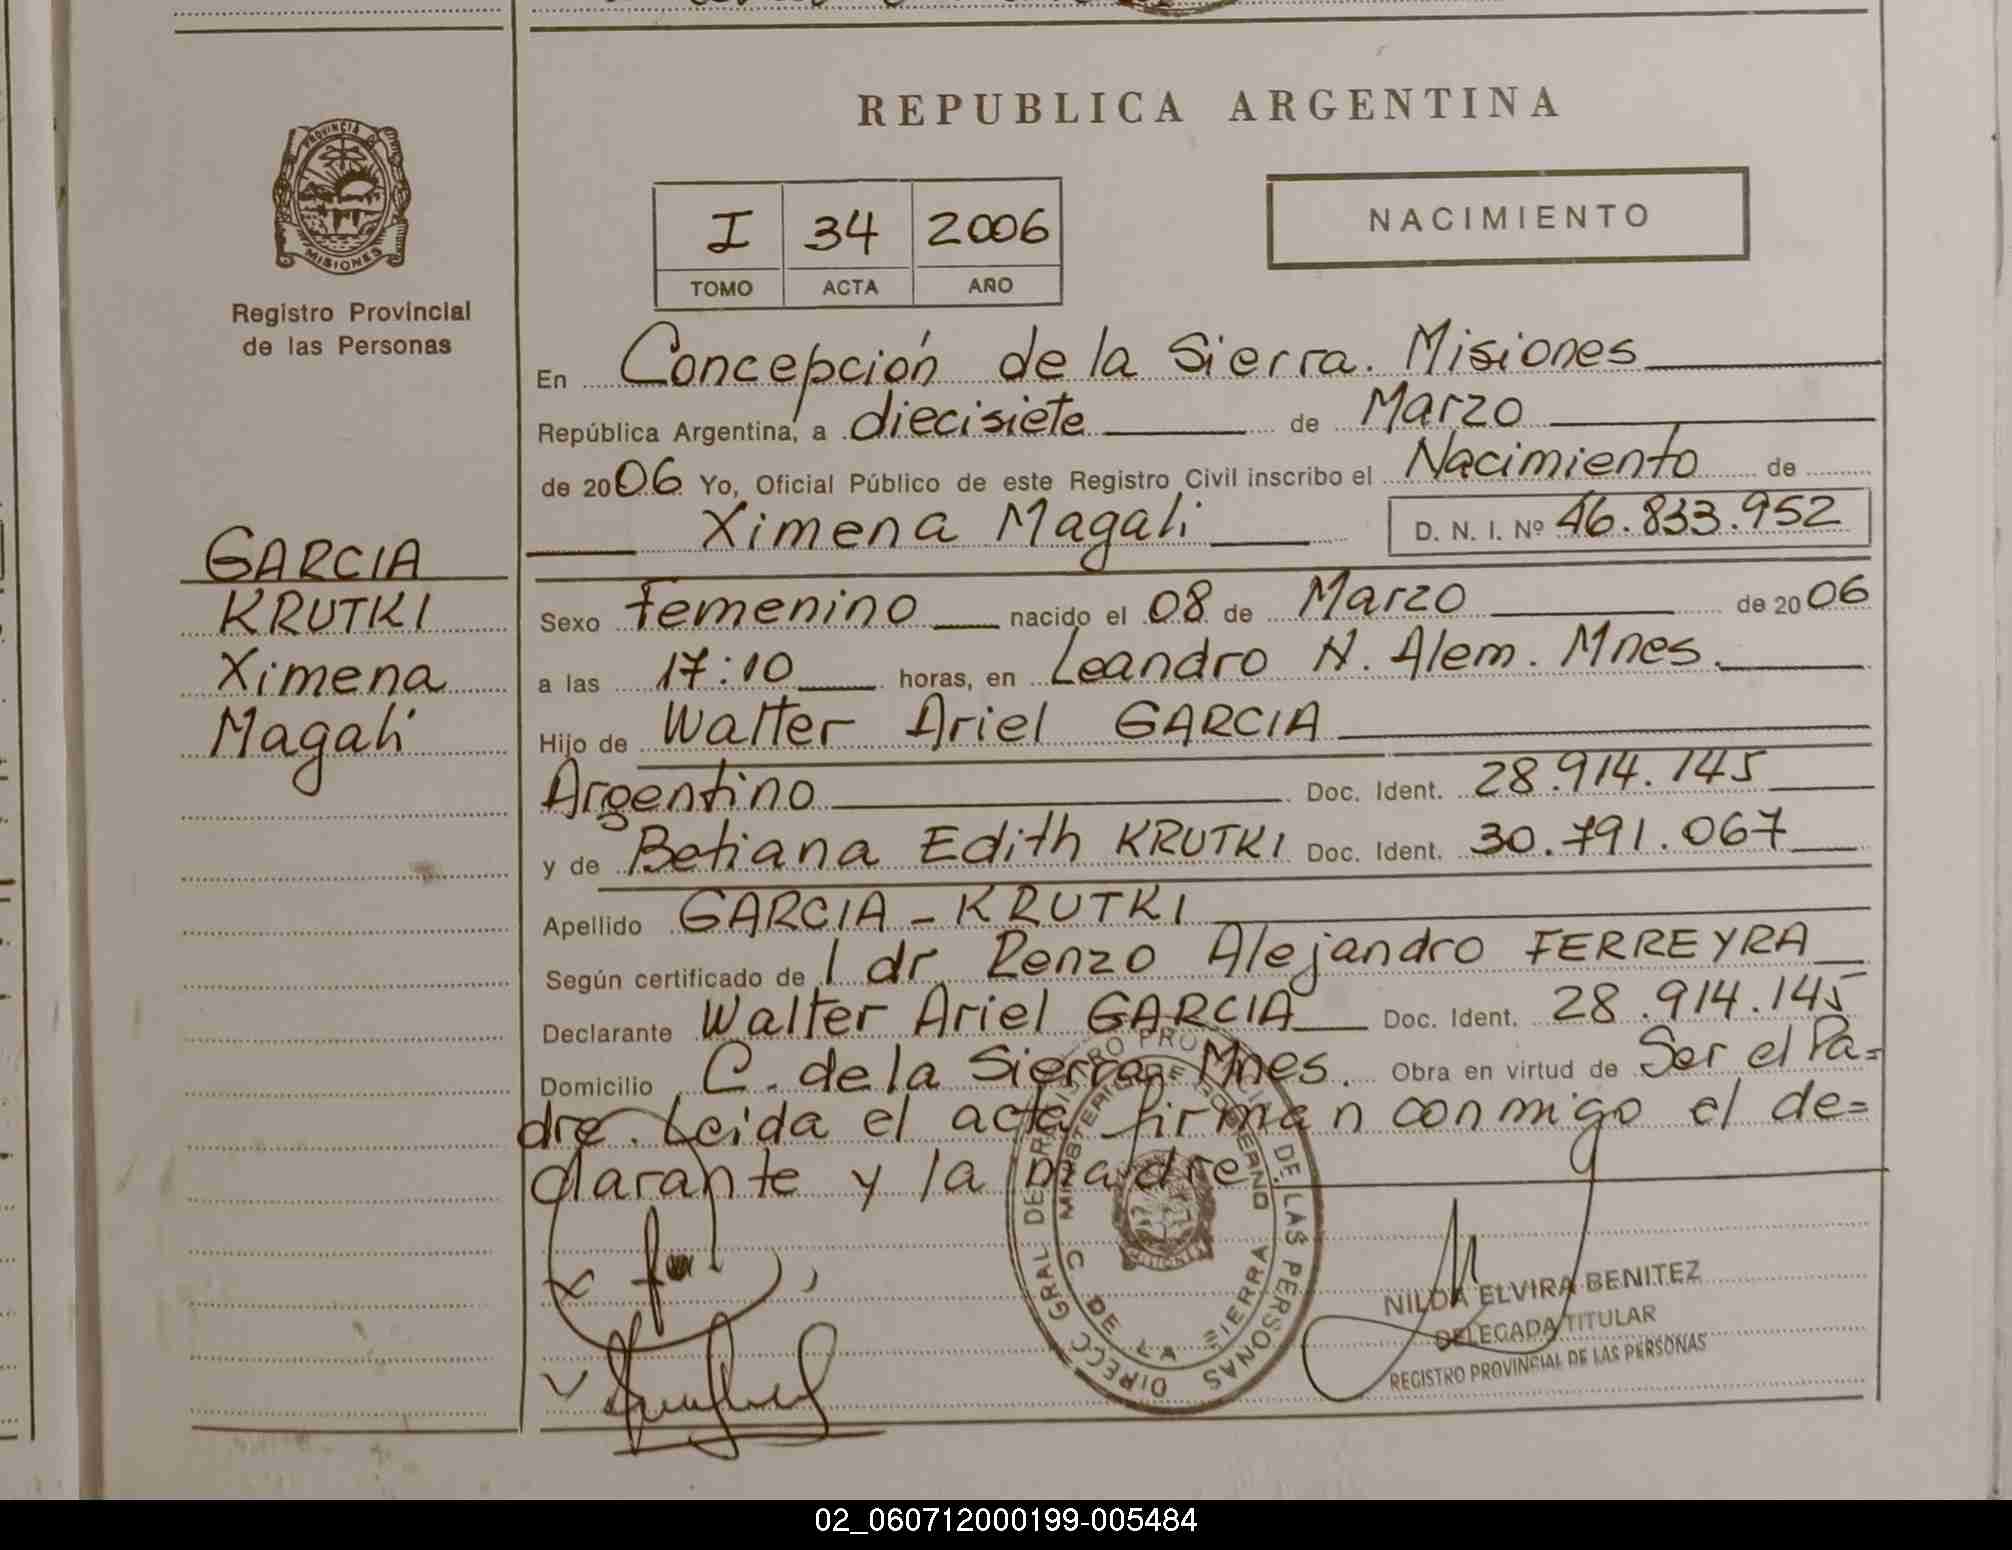 REPUBLICA ARGENTINA
PROVINCIA DE
MISIONES
Registro Provincial
de las Personas
I 34 2006
TOMO ACTA AÑO
NACIMIENTO
GARCIA
KRUTKI
Ximena
Magali
En Concepción de la Sierra. Misiones
República Argentina, a diecisiete de Marzo
de 2006 Yo, Oficial Público de este Registro Civil inscribo el Nacimiento de
Ximena Magali D. N. I. Nº 46.833.952
Sexo Femenino nacido el 08 de Marzo de 2006
a las 17:10 horas, en Leandro N. Alem. Mnes.
Hijo de Walter Ariel GARCIA
Argentino Doc. Ident. 28.914.145
y de Betiana Edith KRUTKI Doc. Ident. 30.791.067
Apellido GARCIA - KRUTKI
Según certificado de l dr Renzo Alejandro FERREYRA
Declarante Walter Ariel GARCIA Doc. Ident. 28.914.145
Domicilio C. de la Sierra Mnes. Obra en virtud de Ser el Pa=
dre. Leida el acta firman conmigo el de=
clarante y la madre
DIRECC GRAL DE REGISTRO PROVINCIAL DE LAS PERSONAS
MINISTERIO DE GOBIERNO
C DE LA SIERRA
NILDA ELVIRA BENITEZ
DELEGADA TITULAR
REGISTRO PROVINCIAL DE LAS PERSONAS
02_060712000199-005484